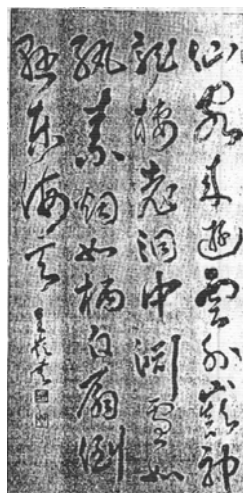 仙客来遊雲外巓神
龍棲老洞中淵雪如
紈素烟如柄白扇倒
懸東海天